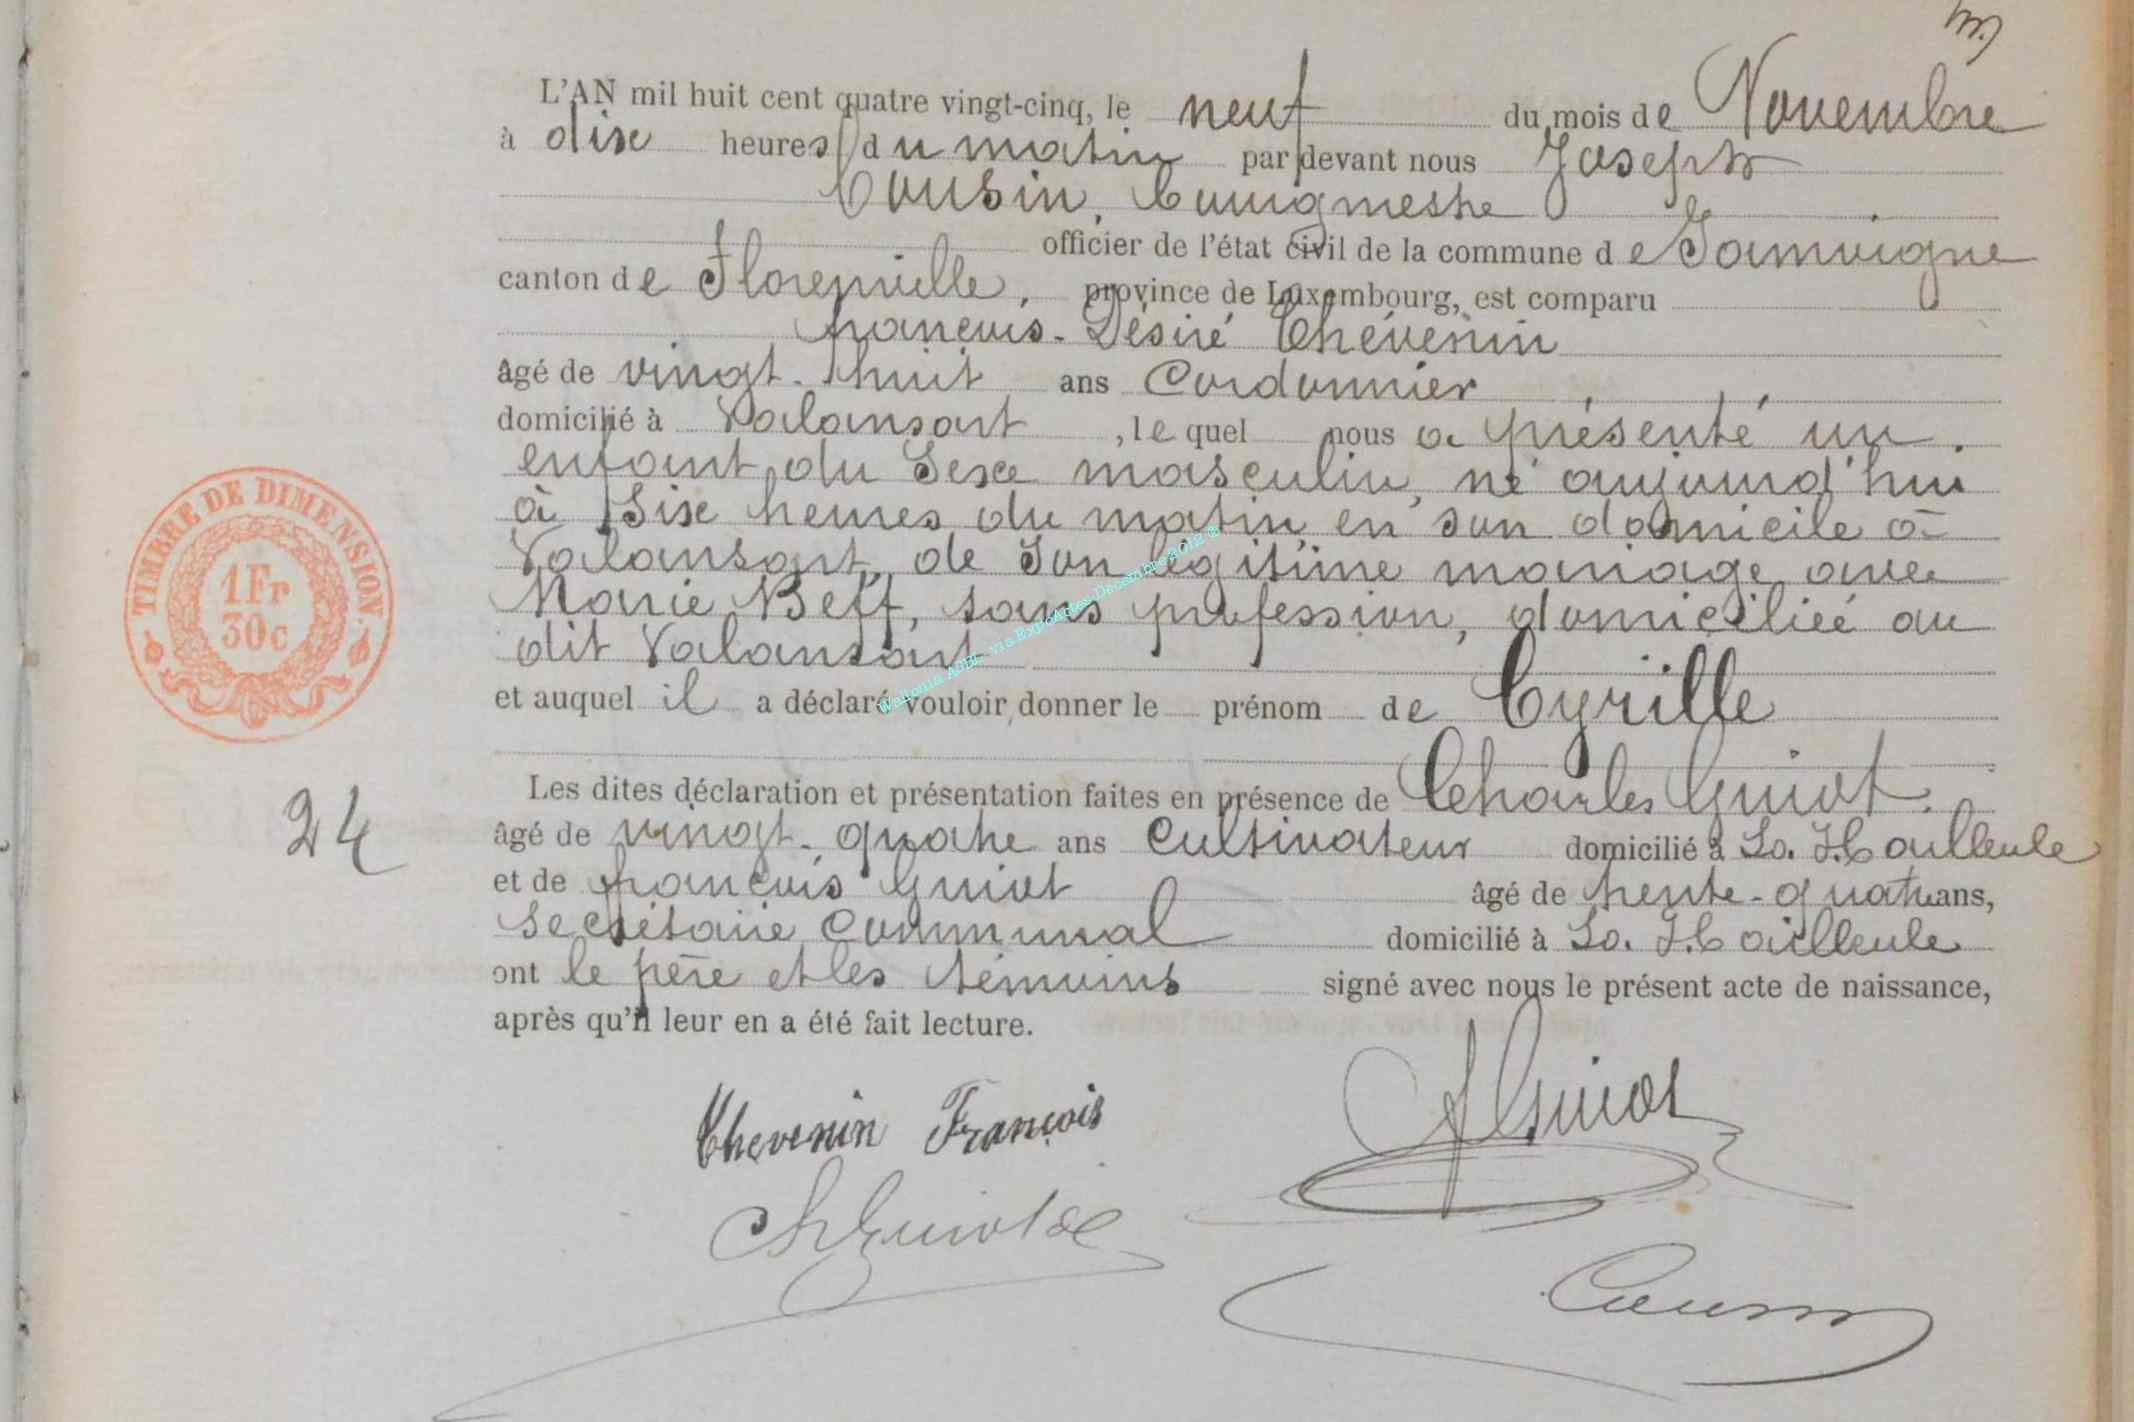 L'AN mil huit cent quatre vingt-cinq, le neuf du mois de Novembre
à dix heures du matin par devant nous Joseph
Cousin, Bourgmestre
officier de l'état civil de la commune de Jamoigne
canton de Florenville, province de Luxembourg, est comparu
françois-Désiré Chévenin
âgé de vingt-huit ans Cordonnier
domicilié à Valansart, le quel nous a présenté un
enfant du Sexe masculin, né aujourd'hui
à Six heures du matin, en son domicile à
Valansart, de Son légitime mariage avec
Marie Beff, sans profession, domiciliée au
dit Valansart
et auquel il a déclaré vouloir donner le prénom de Cyrille
Les dites déclaration et présentation faites en présence de Charles Guiot.
âgé de vingt-quatre ans Cultivateur domicilié à La Hailleule
et de françois Guiot âgé de trente-quatre ans,
Secrétaire Communal domicilié à La Hailleule
ont le père et les témoins signé avec nous le présent acte de naissance,
après qu'il leur en a été fait lecture.
TIMBRE DE DIMENSION.
1 Fr
30c
24
Chevenin François
Guiot
Ch Guiot
Cousin